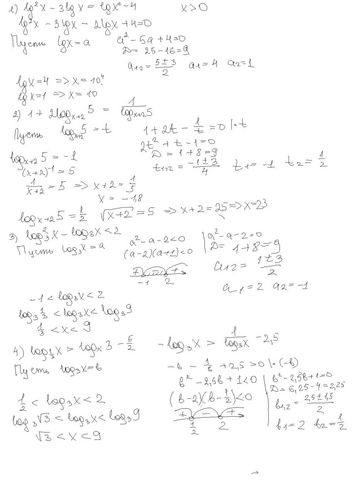 1) lg²x - 3lgx = lgx² - 4     x > 0
lg²x - 3lgx - 2lgx + 4 = 0
Пусть lgx = a     a² - 5a + 4 = 0
D = 25 - 16 = 9
a₁,₂ = (5 ± 3)/2   a₁ = 4   a₂ = 1
lgx = 4 => x = 10⁴
lgx = 1 => x = 10
2) 1 + 2log_{x+2} 5 = 1/log_{x+2} 5
Пусть log_{x+2} 5 = t     1 + 2t - 1/t = 0 |·t
2t² + t - 1 = 0
D = 1 + 8 = 9
t₁,₂ = (-1 ± 3)/4   t₁ = -1   t₂ = 1/2
log_{x+2} 5 = -1
(x+2)⁻¹ = 5
1/(x+2) = 5 => x + 2 = 1/5
x = -1,8
log_{x+2} 5 = 1/2   √(x+2) = 5 => x + 2 = 25 => x = 23
3) log₃²x - log₃x < 2
Пусть log₃x = a   a² - a - 2 < 0   | a² - a - 2 = 0
(a - 2)(a + 1) < 0   | D = 1 + 8 = 9
+ - +   a₁,₂ = (1 ± 3)/2
-1   2
a₁ = 2   a₂ = -1
-1 < log₃x < 2
log₃ 1/3 < log₃x < log₃9
1/3 < x < 9
4) log_{1/3} x > log_x 3 - 5/2   -log₃x > 1/log₃x - 2,5
Пусть log₃x = b   -b - 1/b + 2,5 > 0 |·(-b)
b² - 2,5b + 1 < 0   | b² - 2,5b + 1 = 0
(b - 2)(b - 1/2) < 0   | D = 6,25 - 4 = 2,25
+ - +   b₁,₂ = (2,5 ± 1,5)/2
1/2   2   b₁ = 2   b₂ = 1/2
1/2 < log₃x < 2
log₃√3 < log₃x < log₃9
√3 < x < 9